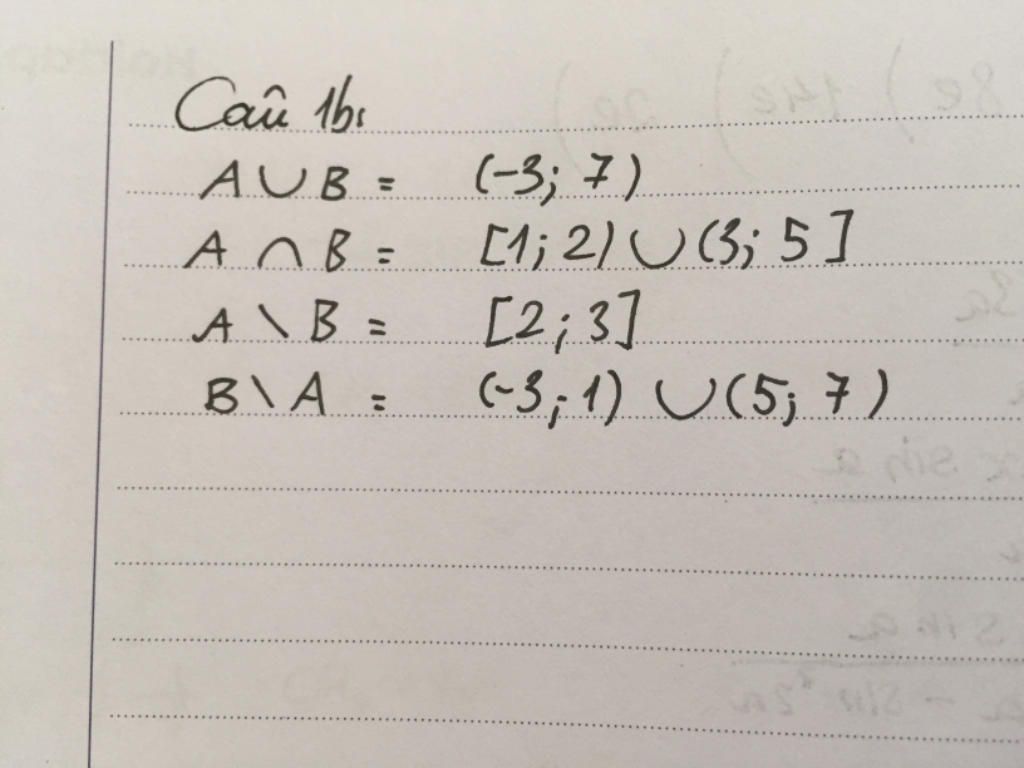 Câu 1b:
A ∪ B = (-3; 7)
A ∩ B = [1; 2) ∪ (3; 5]
A \ B = [2; 3]
B \ A = (-3; 1) ∪ (5; 7)